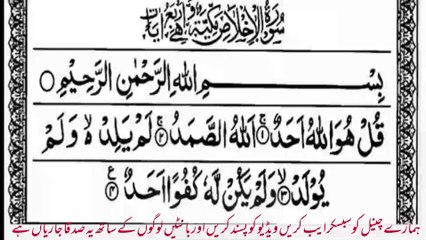 سُوْرَةُ الْاِخْلَاصِ مَكِّيَّةٌ وَّهِيَ اَرْبَعُ اٰيَاتٍ
بِسْمِ اللهِ الرَّحْمٰنِ الرَّحِيْمِ ○
قُلْ هُوَ اللهُ اَحَدٌ ۚ﴿۱﴾ اَللهُ الصَّمَدُ ۚ﴿۲﴾ لَمْ يَلِدْ ۙ۬ وَلَمْ
يُوْلَدْ ۙ﴿۳﴾ وَلَمْ يَكُنْ لَّهٗ كُفُوًا اَحَدٌ ﴿۴﴾ ع
ہمارے چینل کو سبسکرایب کریں ویڈیو کو پسند کریں اور بانٹیں لوگوں کے ساتھ یہ صدقا جاریاں ہے